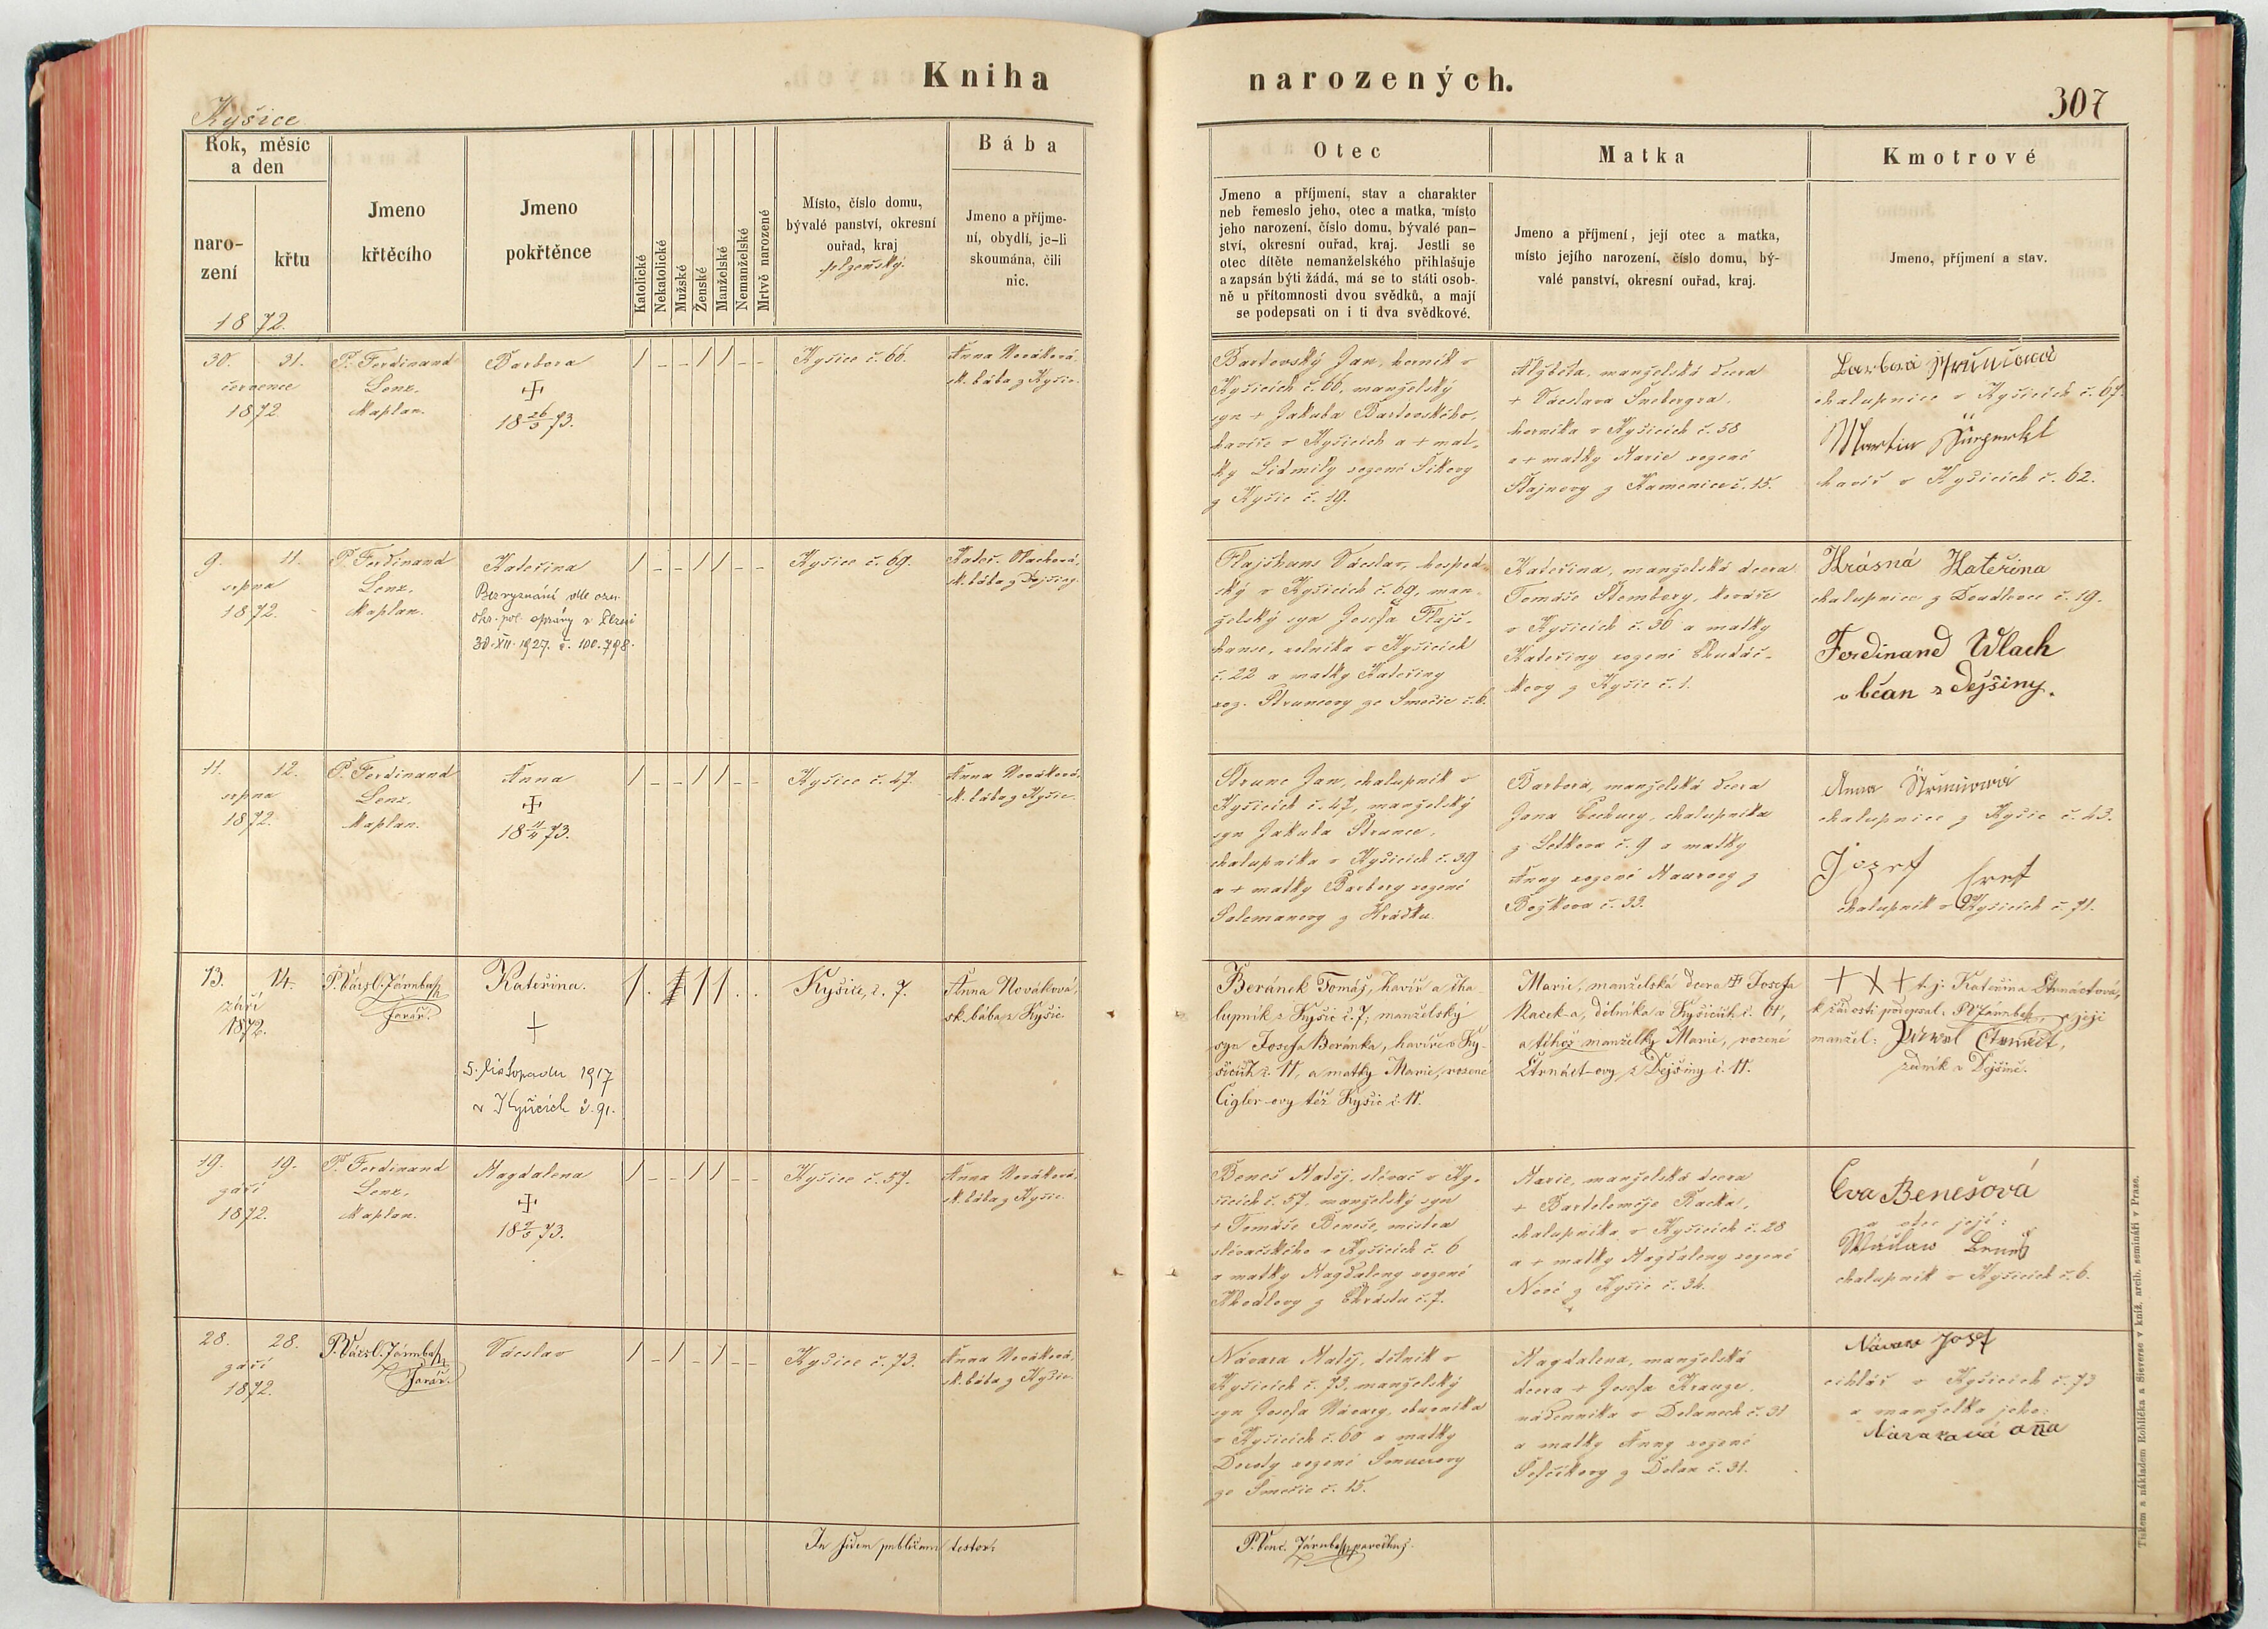 Kniha
narozených.
307
Kyšice
Rok, měsíc
a den
naro-
zení
křtu
1872.
Jmeno
křtěcího
Jmeno
pokřtěnce
Katolické
Nekatolické
Mužské
Ženské
Manželské
Nemanželské
Mrtvě narozené
Místo, číslo domu,
bývalé panství, okresní
ouřad, kraj
Bába
Jmeno a příjme-
ní, obydlí, je-li
skoumána, čili
nic.
Otec
Jmeno a příjmení, stav a charakter
neb řemeslo jeho, otec a matka, místo
jeho narození, číslo domu, bývalé pan-
ství, okresní ouřad, kraj. Jestli se
otec dítěte nemanželského přihlašuje
a zapsán býti žádá, má se to státi osob-
ně u přítomnosti dvou svědků, a mají
se podepsati on i ti dva svědkové.
Matka
Jmeno a příjmení, její otec a matka,
místo jejího narození, číslo domu, bý-
valé panství, okresní ouřad, kraj.
Kmotrové
Jmeno, příjmení a stav.
30. 31.
července
1872
P. Ferdinand
Lenz,
Kaplan.
Barbora
18 26/3 73.
/ - - / / - -
Kyšice č. 66.
Anna Nováková,
sk. bába z Kyšic.
Bartovský Jan, horník v
Kyšicích č. 66, manželský
syn + Jakuba Bartovského,
havíře v Kyšicích a + mat-
ky Lidmily rozené Síkovy
z Kyšic č. 19.
Alžběta, manželská dcera
+ Václava Šneberga,
horníka v Kyšicích č. 58
a + matky Marie rozené
z Kamenice č. 15.
Barbora Štruncová
chalupnice v Kyšicích č. 67.
Martin
havíř v Kyšicích č. 62.
9. 11.
srpna
1872.
P. Ferdinand
Lenz,
Kaplan.
Kateřina
Bez vyznání dle ozn.
okr. pol. správy v Plzni
30. XII. 1927. č. 100.798.
/ - - / / - -
Kyšice č. 69.
Kateř. Vlachová,
sk. bába z Dejšiny.
Flajšhans Václav, hospod-
ský v Kyšicích č. 69, man-
želský syn Josefa Flajš-
hanse, rolníka v Kyšicích
č. 22 a matky Kateřiny
roz. Štruncovy ze Smečic č. 6.
Kateřina, manželská dcera
Tomáše Štembery, kováře
v Kyšicích č. 36 a matky
Kateřiny rozené Chudáč-
kovy z Kyšic č. 1.
Krásná Kateřina
chalupnice z Doudlevec č. 19.
Ferdinand Wlach
občan z Dejšiny.
11. 12.
srpna
1872.
P. Ferdinand
Lenz,
Kaplan.
Anna
18 11/4 73.
/ - - / / - -
Kyšice č. 47.
Anna Nováková,
sk. bába z Kyšic.
Štrunc Jan, chalupník v
Kyšicích č. 47, manželský
syn Jakuba Štrunce,
chalupníka v Kyšicích č. 39
a + matky Barbory rozené
z Hrádku.
Barbora, manželská dcera
Jana Čechury, chalupníka
z Letkova č. 9 a matky
Anny rozené Maurovy z
Božkova č. 33.
Anna Štruncová
chalupnice z Kyšic č. 43.
Jozef
chalupník v Kyšicích č. 71.
13. 14.
září
1872.
P. Václ. Járnbach
farář.
Kateřina.
+
5. listopadu 1917
v Kyšicích č. 91.
Kyšice, č. 7.
Anna Nováková,
sk. bába z Kyšic
Beránek Tomáš, havíř a cha-
lupník z Kyšic č. 7; manželský
syn Josefa Beránka, havíře v Ky-
šicích č. 11, a matky Marie, rozené
Cigler-ovy též z Kyšic č. 11.
Marie, manželská dcera + Josefa
Racek-a, dělníka v Kyšicích č. 61,
a téhož manželky Marie, rozené
Čtrnáct-ovy z Dejšiny č. 11.
+ + + t. j: Kateřina Čtrnáctová,
k žádosti podepsal: a její
manžel: Pawel Ctrnáct,
zedník v Dejšině.
19. 19.
září
1872.
P. Ferdinand
Lenz,
Kaplan.
Magdalena
18 2/3 73.
/ - - / / - -
Kyšice č. 57.
Anna Nováková,
sk. bába z Kyšic.
Beneš Matěj, slévač v Ky-
šicích č. 57, manželský syn
+ Tomáše Beneše, mistra
slévačského v Kyšicích č. 6
a matky Magdaleny rozené
Khodlovy z Chrástu č. 7.
Marie, manželská dcera
+ Bartoloměje Racka,
chalupníka v Kyšicích č. 28
a + matky Magdaleny rozené
Nové z Kyšic č. 34.
Eva Benešová
a otec její:
Wáclaw Beneš
chalupník v Kyšicích č. 6.
28. 28.
září
1872.
P. Václ. Járnbach
farář.
Václav
/ - / - / - -
Kyšice č. 73.
Anna Nováková,
sk. bába z Kyšic.
Návara Matěj, dělník v
Kyšicích č. 73, manželský
syn Josefa Návary,
v Kyšicích č. 60 a matky
Doroty rozené
ze Smečic č. 15.
Magdalena, manželská
dcera + Josefa Krauze,
nádenníka v Dolanech č. 31
a matky Anny rozené
z Dolan č. 31.
Návara Josef
cihlář v Kyšicích č. 73
a manželka jeho:
Navarová Anna
In fidem publicam testor:
P. Venc. Járnbach, parochus.
Tiskem a nákladem Rohlíčka a Sieverse v kníž. arcib. semináři v Praze.